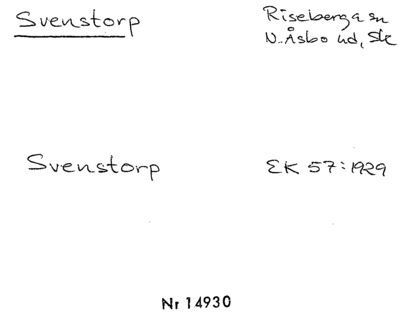 Svenstorp
Riseberga sn
N. Åsbo hd, Sk
Svenstorp
EK 57:1929
Nr 14930